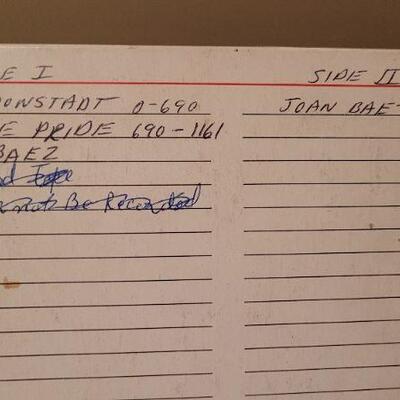 E I
SIDE II
ONSTADT 0-690
JOAN BAE
E PRIDE 690-1161
BAEZ
d Tape
not Be Recorded